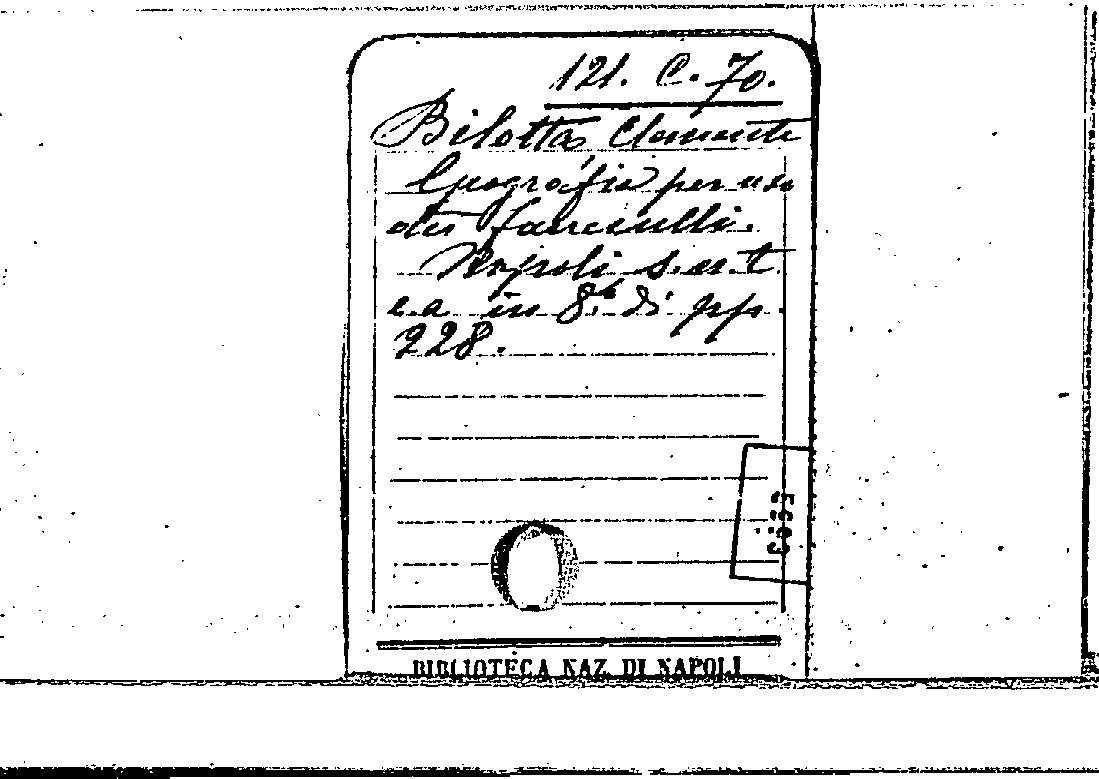 121. C. 70.
Bilotta, Clemente
Geografia per uso
dei fanciulli.
Napoli s. n. t.
e a in 8.º di pp.
228.
BIBLIOTECA NAZ. DI NAPOLI